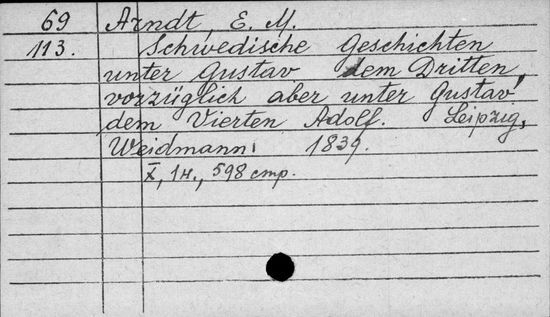 69 Arndt, E. M.
113. Schwedische Geschichten
unter Gustav dem Dritten,
vorzüglich aber unter Gustav
dem Vierten Adolf. Leipzig,
Weidmann, 1839.
X, 1н., 598 стр.